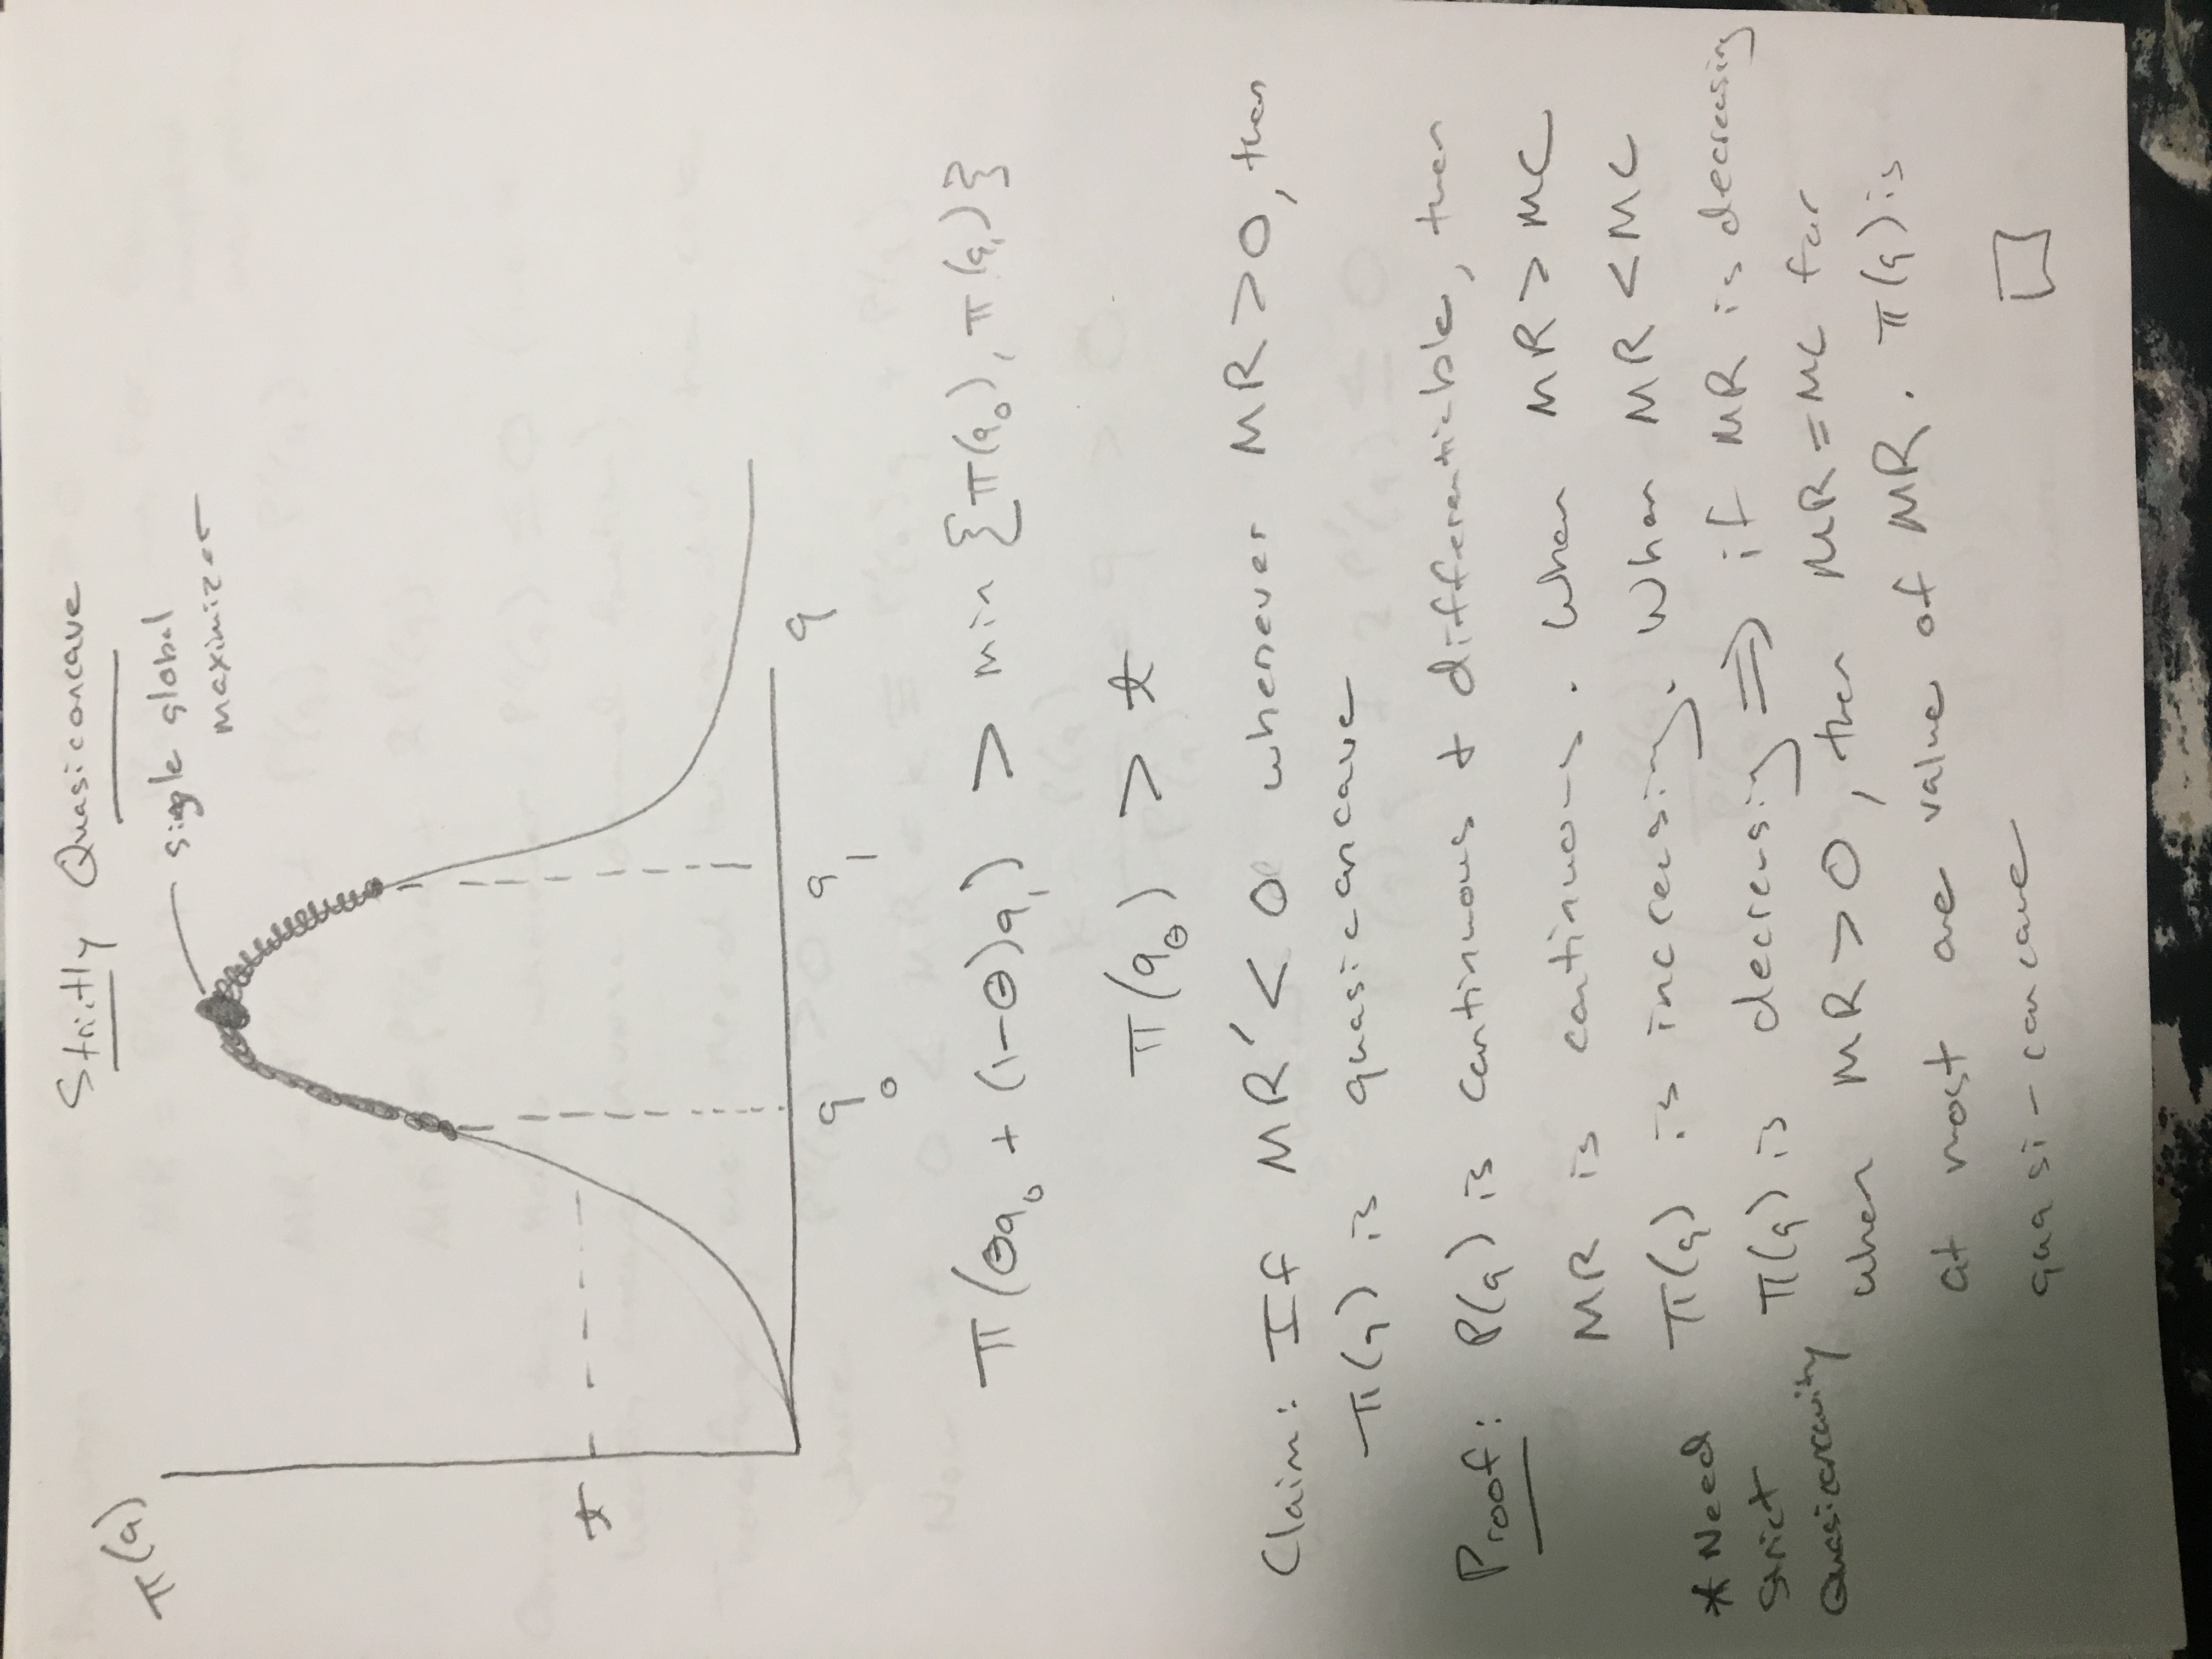 Strictly Quasiconcave
π(q)
single global
maximizer
t
q₀
q₁
q
π(θq₀ + (1-θ)q₁) > min {π(q₀), π(q₁)}
π(q_θ) > t
Claim: If MR′ < 0 whenever MR > 0, then
π(q) is quasiconcave
Proof: P(q) is continuous & differentiable, then
MR is continuous. When MR > MC
π(q) is increasing. When MR < MC
π(q) is decreasing ⇒ if MR is decreasing
when MR > 0, then MR = MC for
at most one value of MR. π(q) is
quasi-concave □
* Need
Strict
Quasiconcavity